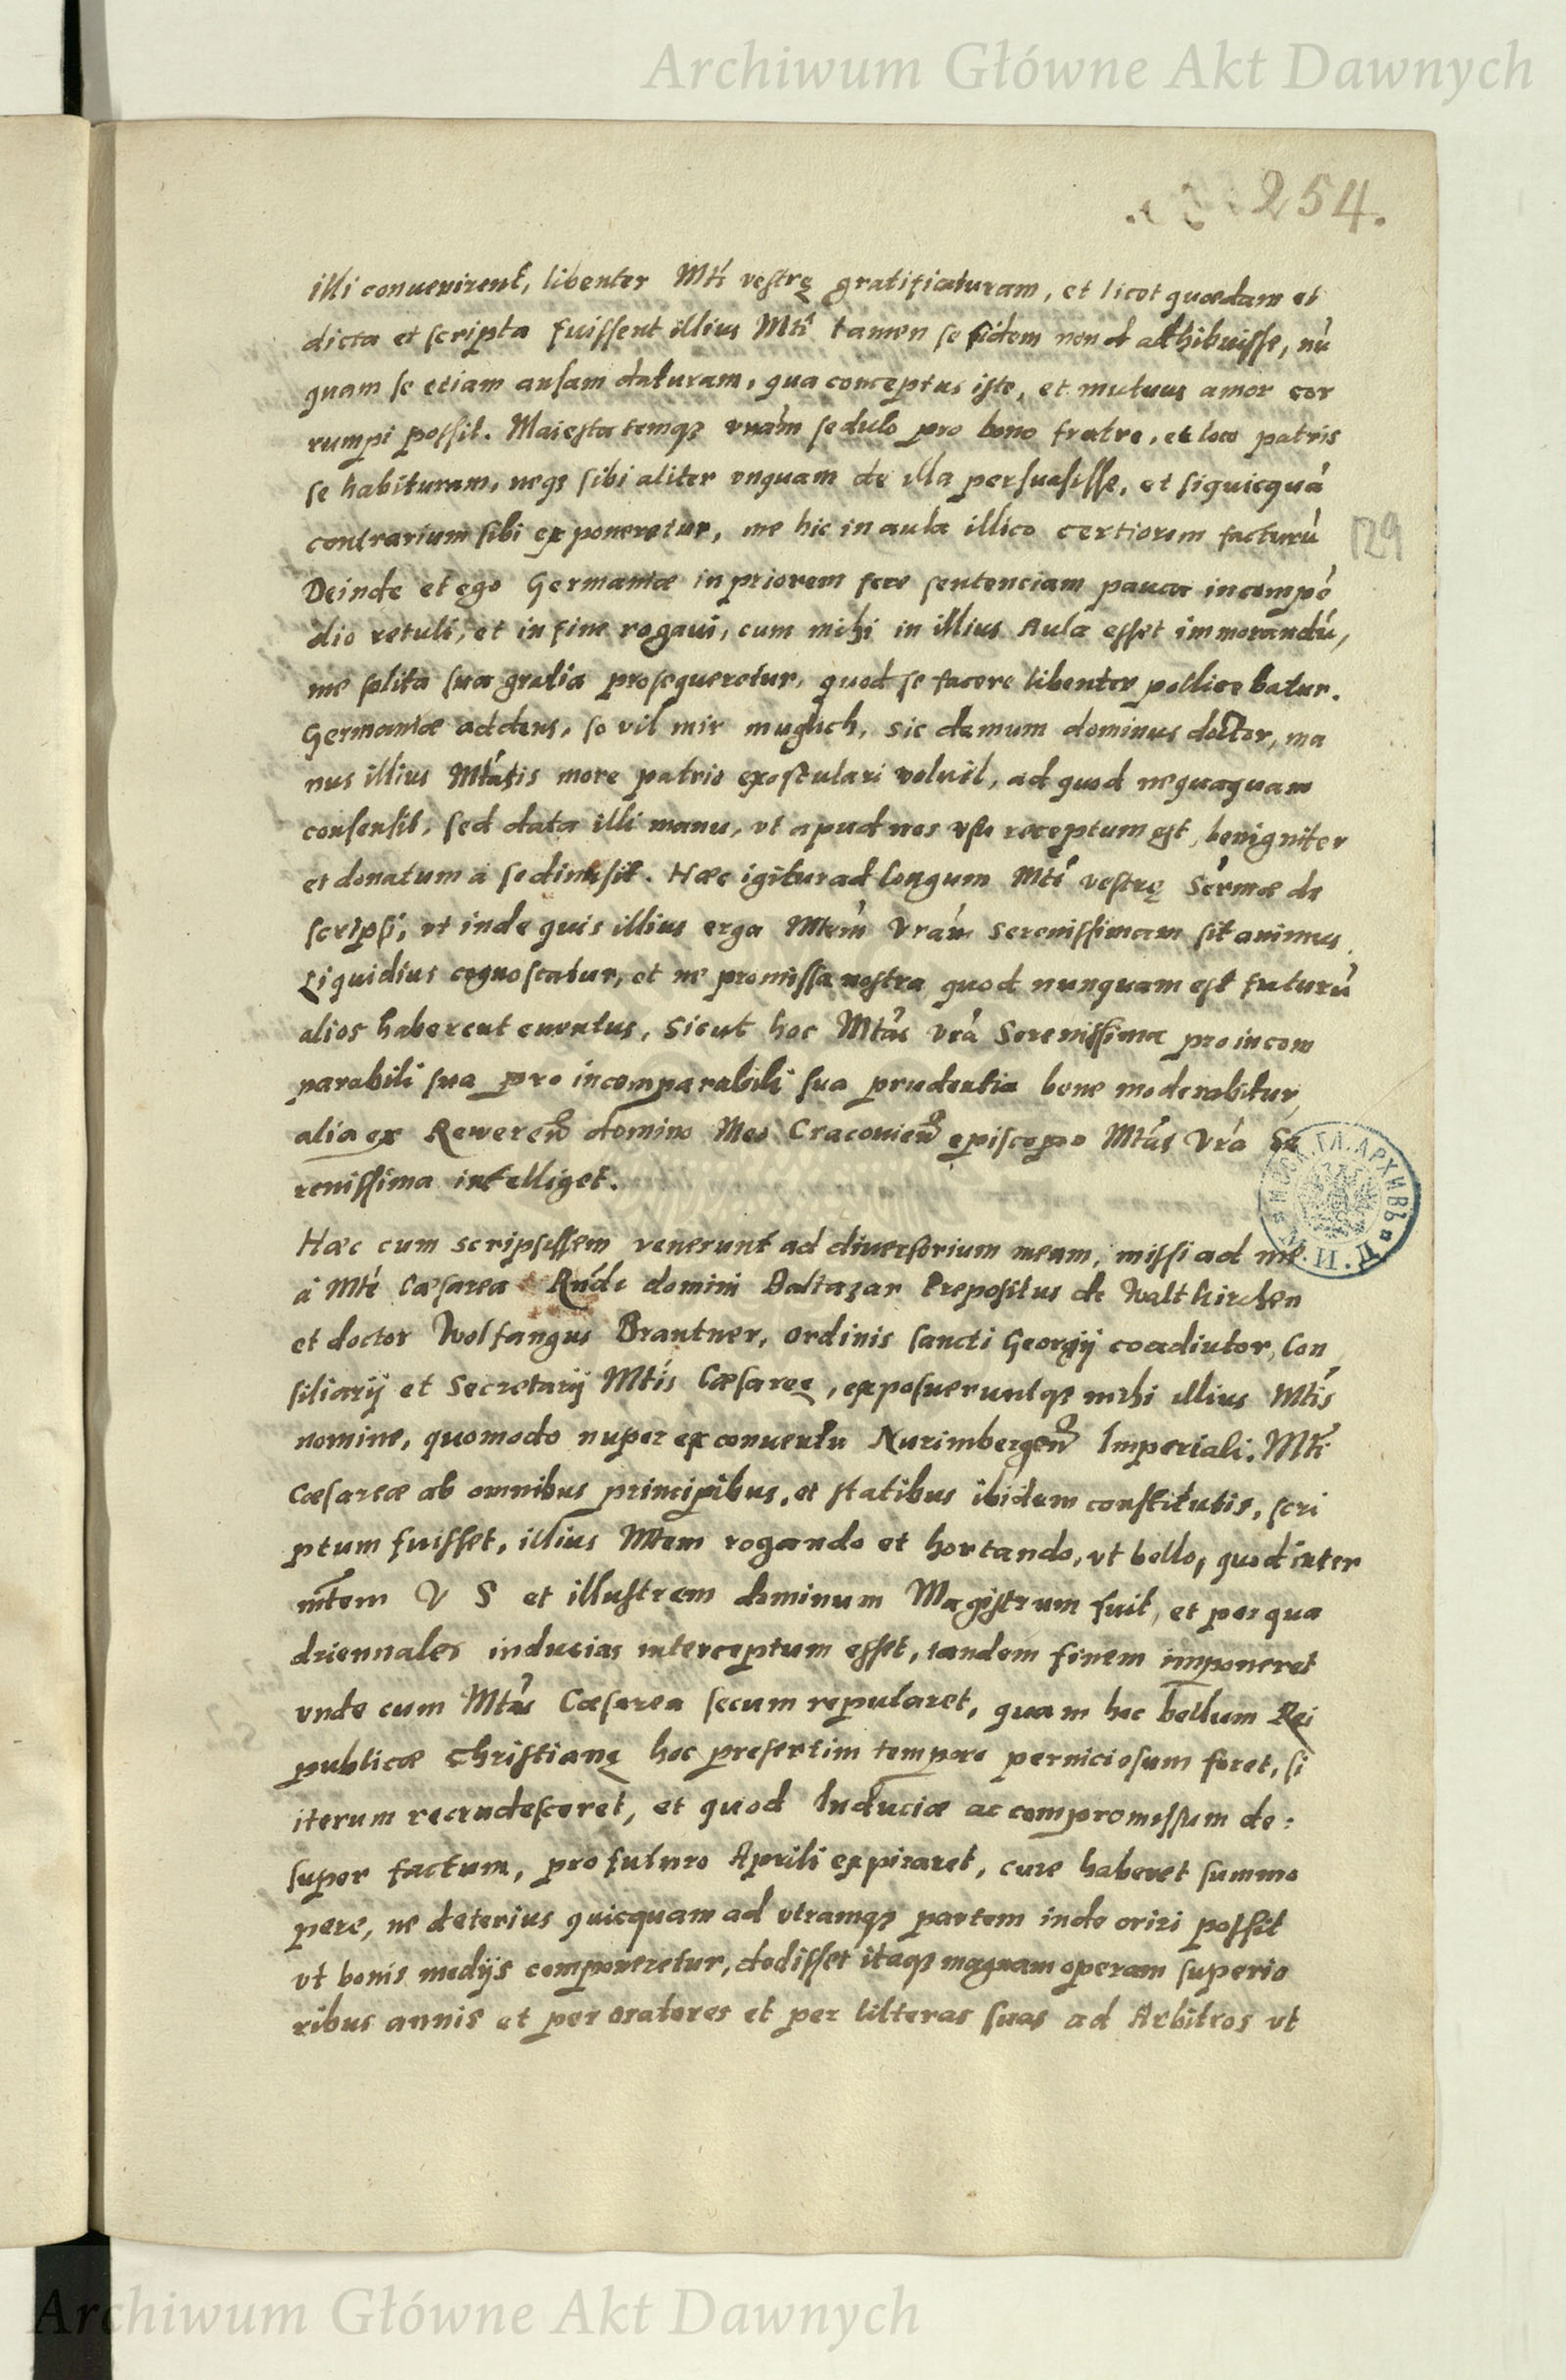 Archiwum Główne Akt Dawnych
254.
illi convenirent, libenter Mti vestrę gratificaturam, et licet quædam et
dicta et scripta fuissent illius Mti tamen se fidem non adhibuisse, nū
quam se etiam ansam daturam, qua conceptus iste, et mutuus amor cor
rumpi possit. Maiestatemqȝ vram sedulo pro bono fratre, et loco patris
se habituram, neqȝ sibi aliter unquam de illa persuasisse, et siquicquā
contrarium sibi exponeretur, me hic in aula illico certiorem facturū
129
Deinde et ego Germanicæ in priorem fere sentenciam pauca in compē
dio retuli, et in fine rogavi, cum mihi in illius Aula esset immorandū,
me solita sua gratia prosequeretur, quod se facere libenter pollicebatur.
Germanicæ addens, so vil mir muglich, sic demum dominus doctor, ma
nus illius Mtatis more patrio exosculari voluit, ad quod nequaquam
consensit, sed data illi manu, ut apud nos usu receptum est, benigniter
et donatum a se dimisit. Hæc igitur ad longum Mti vestrę Sermæ de
scripsi, ut inde quis illius erga Mtem Vram Serenissimam sit animus
Liquidius cognoscatur, et ne promissa nostra quod nunquam est futurū
alios haberent eventus, Sicut hoc Mtas vra Serenissima pro incom
parabili sua pro incomparabili sua prudentia bene moderabitur,
alia ex Reveren domino Meo Cracovien episcopo Mtas Vra Se
renissima intelliget.
Hæc cum scripsissem venerunt ad diversorium meum, missi ad me
a Mte Cæsarea Rndi domini Baltazar Prepositus de Waltkirchen
et doctor Wolfangus Brantner, Ordinis sancti Georgij coadiutor, Con
siliarij et Secretarij Mtis Cæsareę, exposueruntqȝ mihi illius Mtis
nomine, quomodo nuper ex conventu Nurimbergen Imperiali. Mti
Cæsareæ ab omnibus principibus, et statibus ibidem constitutis, scri
ptum fuisset, illius Mtem rogando et hortando, ut bello, quod inter
mtem V S et illustrem dominum Magistrum fuit, et per qua
driennales inducias interceptum esset, tandem finem imponeret
unde cum Mtas Cæsarea secum reputaret, quam hoc bellum Rei
publicæ Christianę hoc presertim tempore perniciosum foret, si
iterum recrudesceret, et quod Induciæ ac compromissum de:
super factum, pro futuro Aprili expiraret, cure haberet summo
pere, ne deterius quicquam ad utramqȝ partem inde oriri possit
ut bonis medijs componeretur, dedisset itaqȝ magnam operam superio
ribus annis et per oratores et per litteras suas ad Arbitros ut
Archiwum Główne Akt Dawnych